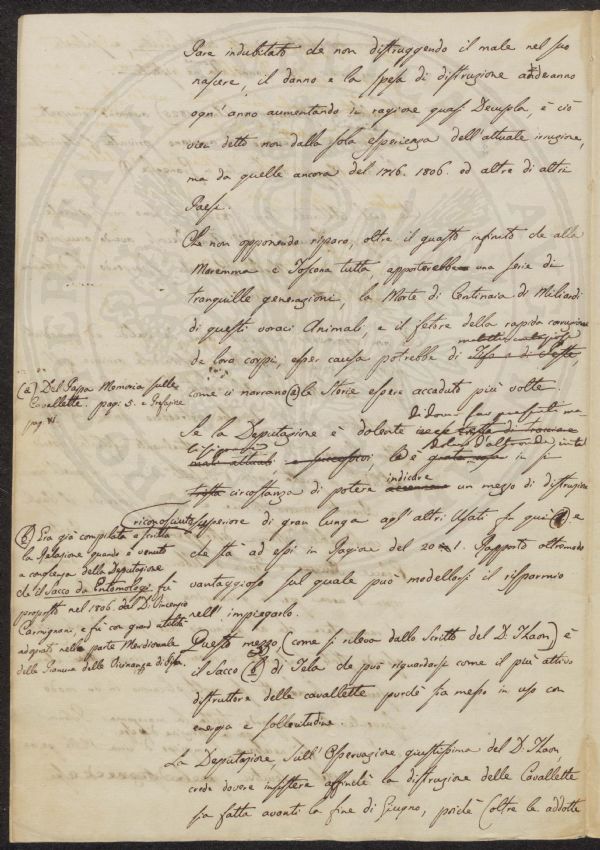 Pare indubitato che non distruggendo il male nel suo
nascere, il danno e la spesa di distruzione anderanno
ogni anno aumentando in ragione quasi Decupla, e ciò
vien detto non dalla sola esperienza dell'attuale irruzione,
ma da quelle ancora del 1716. 1806. ed altre di altri
Paesi.
Che non opponendo riparo, oltre il guasto infinito che alla
Maremma e Toscana tutta apporterebbe una serie di
tranquille generazioni, la Morte di Centinaia di Miliardi
di questi voraci Animali, e il fetore della rapida corruzione
de loro corpi, esser causa potrebbe di
come ci narrano (a) le Storie essere accaduto più volte
(a) Del Pappa Memoria sulle
Cavallette. pag: 5. e
pag. VI.
Se la Deputazione è dolente
circostanza di potere indicare un mezzo di distruzione
riconosciuto superiore di gran lunga agl'altri Usati fin quì e
che stà ad essi in Ragione del 20 1. Rapporto oltremodo
vantaggioso sul quale può modellarsi il risparmio
nell'impiegarlo.
(b) Era già compilata e scritta
la Relazione quando è venuto
a cognizione della Deputazione
che il Sacco da Entomologi fù
proposto nel 1806. dal D. Vincenzio
Carmignani, e fù con grand utilità
adoprato nella parte Meridionale
della Pianura delle Vicinanze di Pisa.
Questo mezzo, (come si rileva dallo Scritto del D. Thaon) è
il Sacco (b) di Tela che può riguardarsi come il più attivo
distruttore delle cavallette purchè sia messo in uso con
energia e sollecitudine.
La Deputazione, sull'Osservazione giustissima del D. Thaon
crede dovere insistere affinchè la distruzione delle Cavallette
sia fatta avanti la fine di Giugno, poichè (oltre le addotte